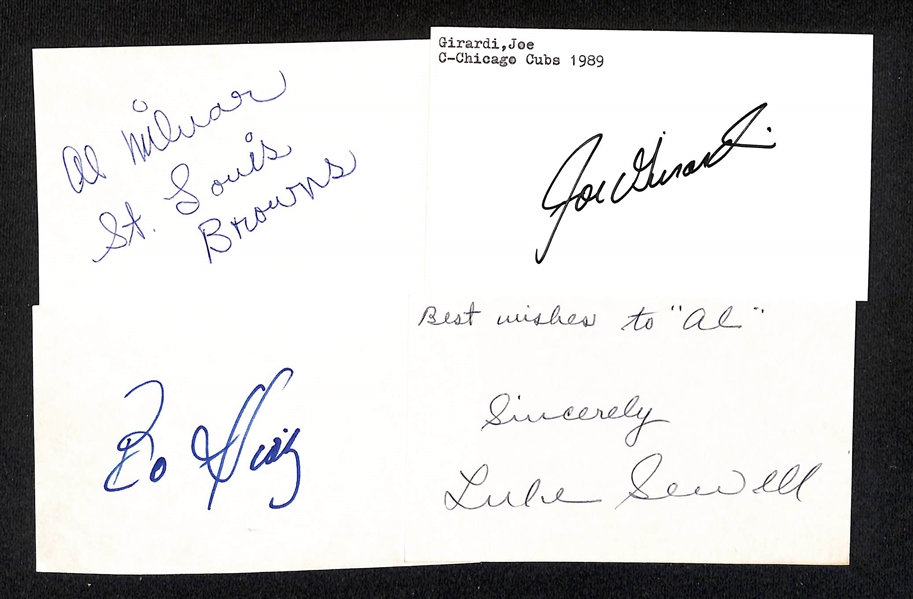 Al Milnar
St. Louis
Browns
Girardi,Joe
C-Chicago Cubs 1989
Joe Girardi
Bo
Best wishes to "Al"
Sincerely
Luke Sewell